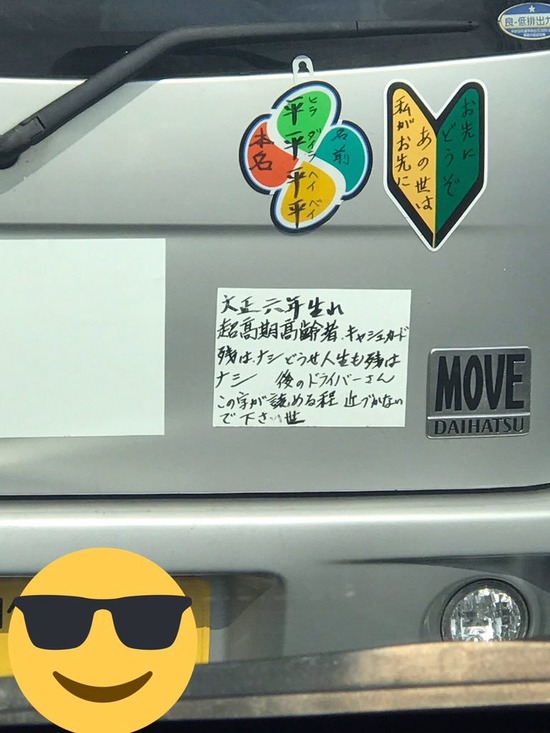 良-低排出力
本名
平平平平
ヒラ ダイラ ヘイ ベイ
名前
お先に
どうぞ
あの世は
私がお先に
大正六年生れ
超高期高齢者.キャシュカード
残は、ナシどうせ人生も残は
ナシ 後のドライバーさん
この字が読める程 近づかない
で下さい世
MOVE
DAIHATSU